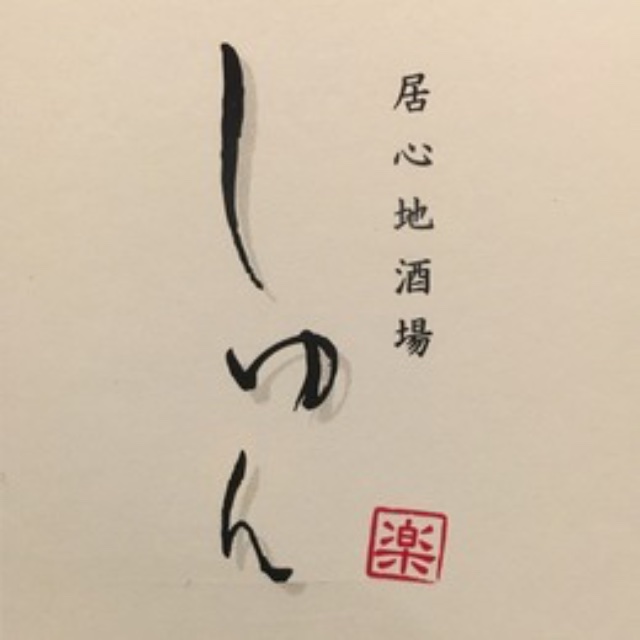 居心地酒場
しゅん
楽